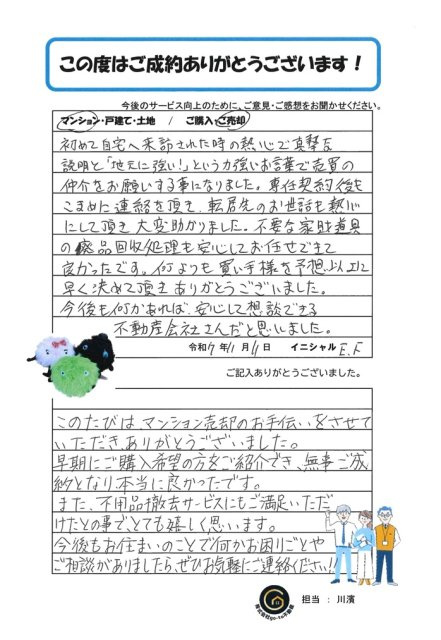 この度はご成約ありがとうございます！
今後のサービス向上のために、ご意見・ご感想をお聞かせください。
マンション・戸建て・土地　/　ご購入・ご売却
初めて自宅へ来訪された時の熱心で真摯な
説明と「地元に強い！」という力強いお言葉で売買の
仲介をお願いする事になりました。専任契約後も
こまめに連絡を頂き、転居先のお世話も熱心
にして頂き大変助かりました。不要な家財道具
の廃品回収処理も安心してお任せできて
良かったです。何よりも買い手様を予想以上に
早く決めて頂きありがとうございました。
今後も何かあれば、安心して想談できる
不動産会社さんだと思いました。
令和7年11月4日　イニシャル E.F
ご記入ありがとうございました。
このたびはマンション売却のお手伝いをさせて
いただき、ありがとうございました。
早期にご購入希望の方をご紹介でき、無事ご成
約となり本当に良かったです。
また、不用品撤去サービスにもご満足いただ
けたとの事で、とても嬉しく思います。
今後もお住まいのことで何かお困りごとや
ご相談がありましたら、ぜひお気軽にご連絡ください!!
担当 : 川濱